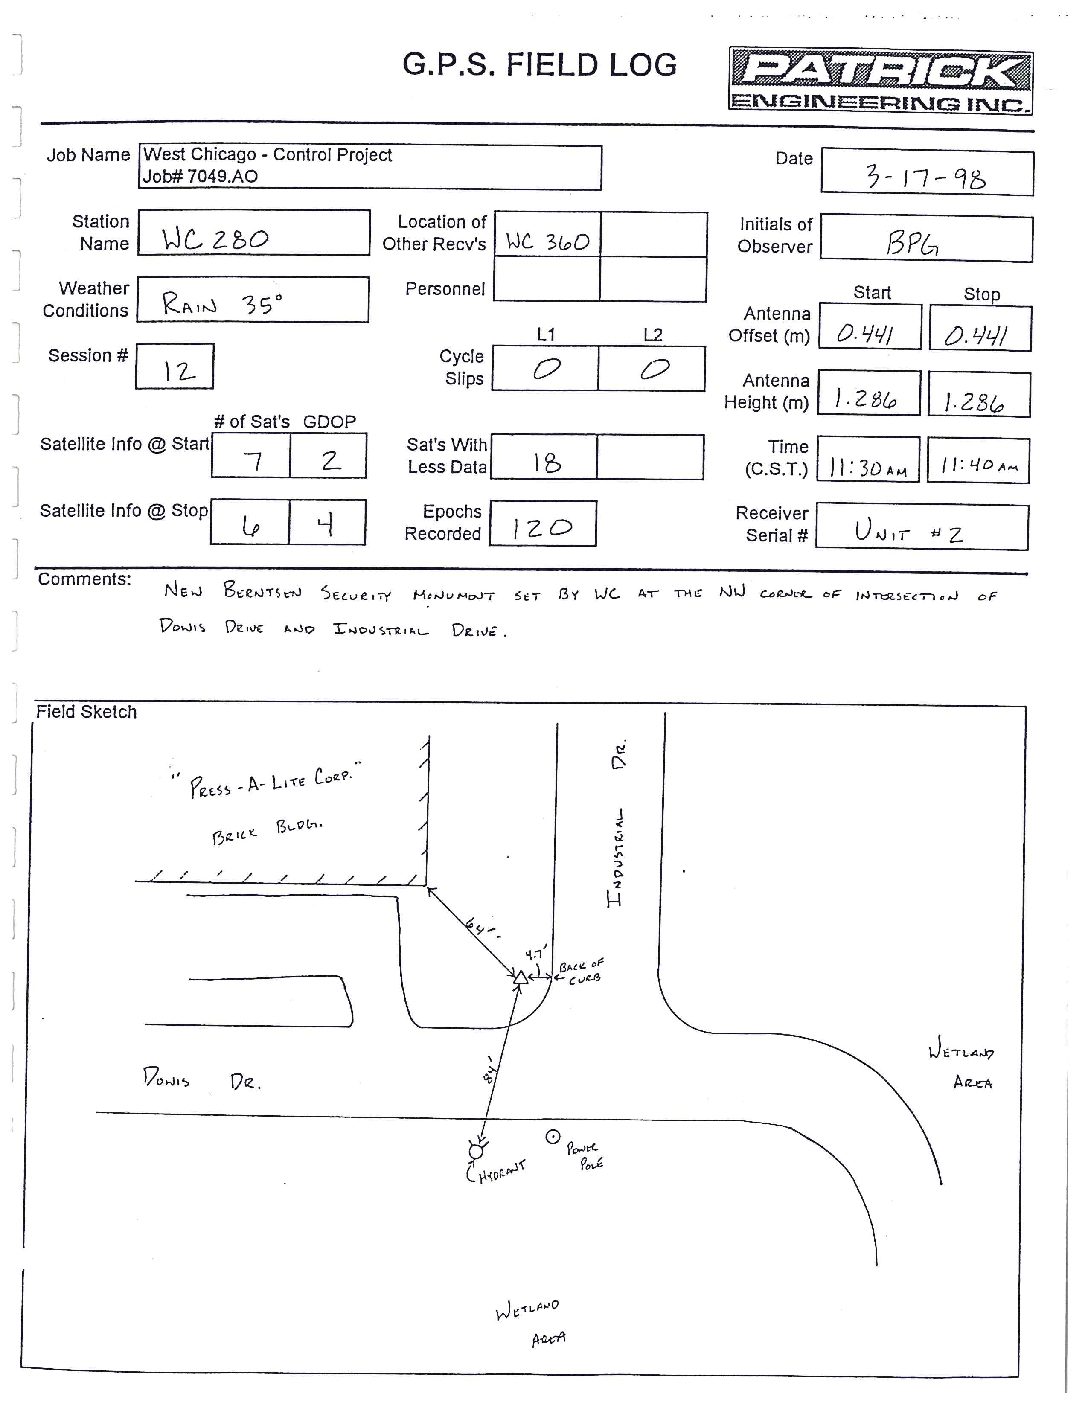 G.P.S. FIELD LOG
PATRICK
ENGINEERING INC.
Job Name West Chicago - Control Project
Job# 7049.AO
Date 3-17-98
Station Name WC 280
Location of Other Recv's WC 360
Initials of Observer BPG
Weather Conditions RAIN 35°
Personnel
Start Stop
Antenna Offset (m) 0.441 0.441
Session # 12
L1 L2
Cycle Slips 0 0
Antenna Height (m) 1.286 1.286
# of Sat's GDOP
Satellite Info @ Start 7 2
Sat's With Less Data 18
Time (C.S.T.) 11:30 AM 11:40 AM
Satellite Info @ Stop 6 4
Epochs Recorded 120
Receiver Serial # UNIT #2
Comments: NEW BERNTSEN SECURITY MONUMENT SET BY WC AT THE NW CORNER OF INTERSECTION OF
DOWIS DRIVE AND INDUSTRIAL DRIVE.
Field Sketch
"PRESS-A-LITE CORP."
BRICK BLDG.
INDUSTRIAL DR.
64'
4.7'
BACK OF
CURB
84'
DOWIS DR.
WETLAND
AREA
HYDRANT
POWER
POLE
WETLAND
AREA